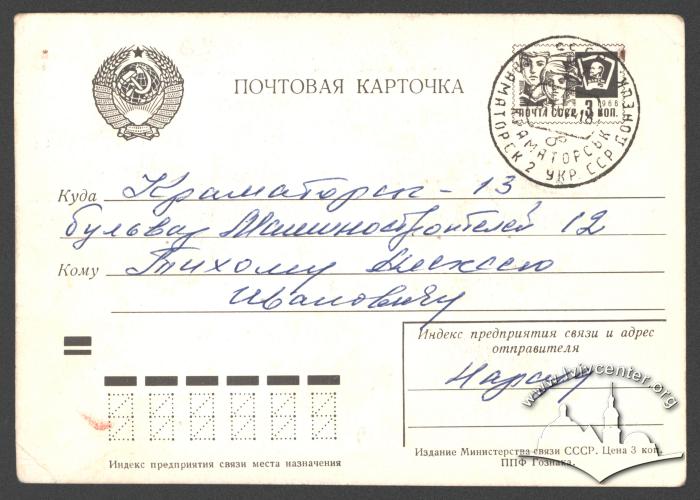 ПОЧТОВАЯ КАРТОЧКА
ПОЧТА СССР 3 КОП.
1966
СССР ДОНЕЦК
КРАМАТОРСК 2 УКР. ССР
КРАМАТОРСЬК
Куда Краматорск - 13
бульвар Машиностроителей 12
Кому Тихому Алексею
Ивановичу
Индекс предприятия связи и адрес
отправителя
www.lvivcenter.org
Индекс предприятия связи места назначения
Издание Министерства связи СССР. Цена 3 коп.
ППФ Гознака.